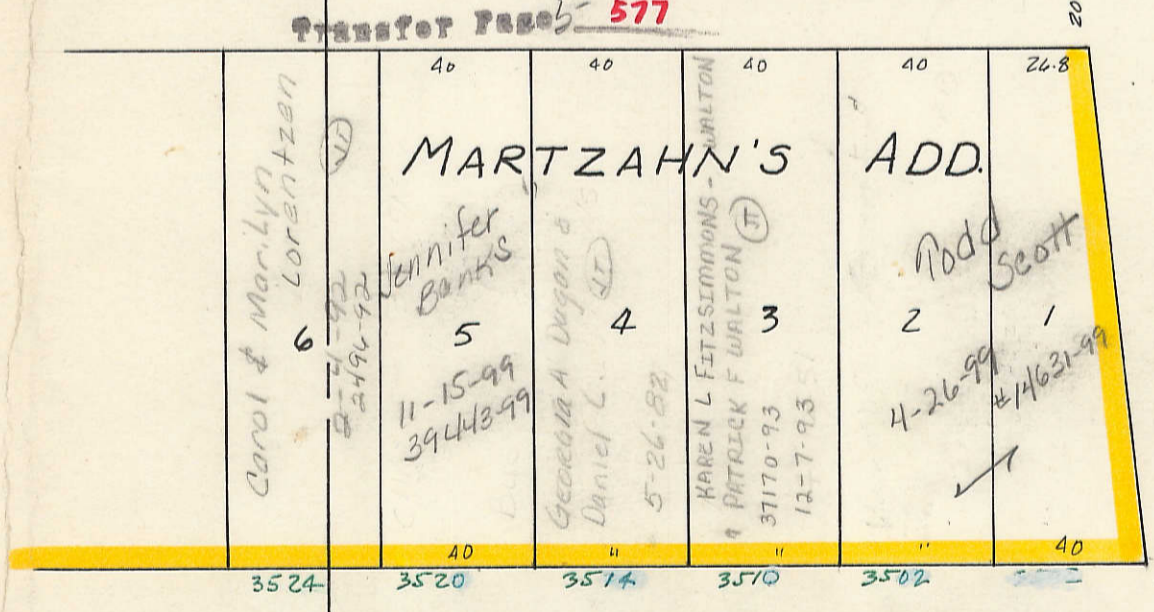 Transfer Page 577
20
40 40 40 40 26.8
MARTZAHN'S ADD.
Carol & Marilyn
Lorentzen
JT
6
2496-92
Jennifer
Banks
5
11-15-99
39443-99
Georgia A Dugan &
Daniel C.
JT
4
5-26-82
KAREN L FITZSIMMONS-WALTON
PATRICK F WALTON JT
3
37170-93
12-7-93
Todd Scott
2 1
4-26-99 #14631-99
40 " " " 40
3524 3520 3514 3510 3502